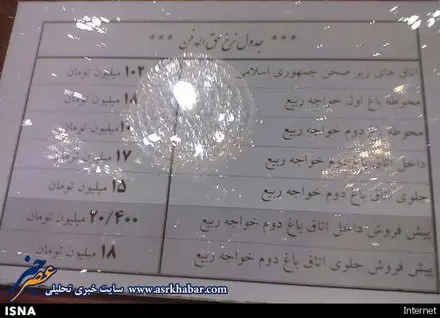 *** جدول نرخ حق الدفن ***
اتاق های زیر صحن جمهوری اسلامی ۱۰۲ میلیون تومان
محوطه باغ اول خواجه ربیع ۱۸ میلیون تومان
محوطه باغ دوم خواجه ربیع میلیون تومان
داخل اتاق باغ دوم خواجه ربیع ۱۷ میلیون تومان
جلوی اتاق باغ دوم خواجه ربیع ۱۵ میلیون تومان
پیش فروش داخل اتاق باغ دوم خواجه ربیع ۲۰/۴۰۰ میلیون تومان
پیش فروش جلوی اتاق باغ دوم خواجه ربیع ۱۸ میلیون تومان
عصر خبر
www.asrkhabar.com سایت خبری تحلیلی
ISNA
Internet